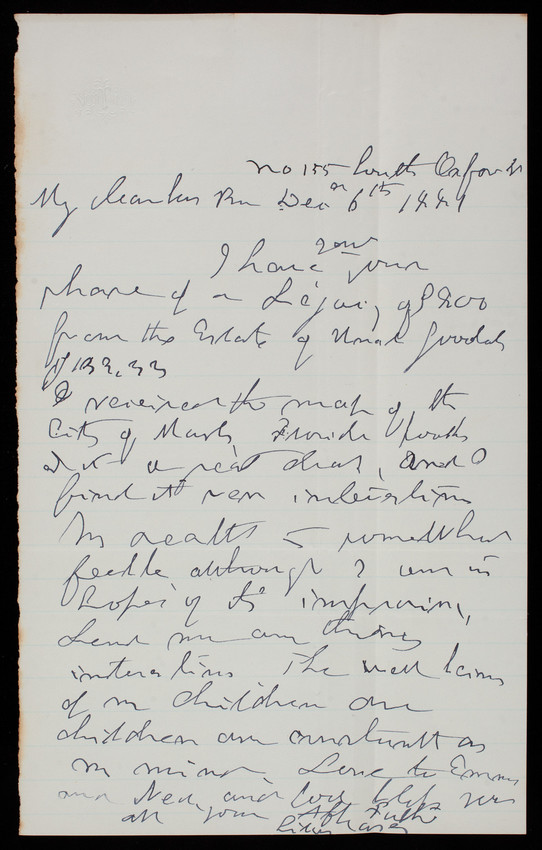 No 155 South Oxford St
My dear Dec 6th
I have your
share of a Legacy of $200
from the Estate of
I received the map of the
City of Florida
at it a great deal, and
find it very interesting
My health is somewhat
feeble although I am in
hopes of its improving,
Send me any thing
interesting The well being
of my children and
children are constantly on
my mind. Love to Emma
and Ned, and God bless you
all your Aft Father